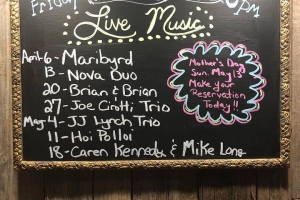 Friday
PM
Live Music
April-6 - Maribyrd
13 - Nova Duo
20 - Brian & Brian
27 - Joe Ciotti Trio
May-4 - JJ Lynch Trio
11 - Hoi Polloi
18 - Caren Kennedy & Mike Lang
Mother's Day
Sun. May 13th
Make your
Reservation
Today!!